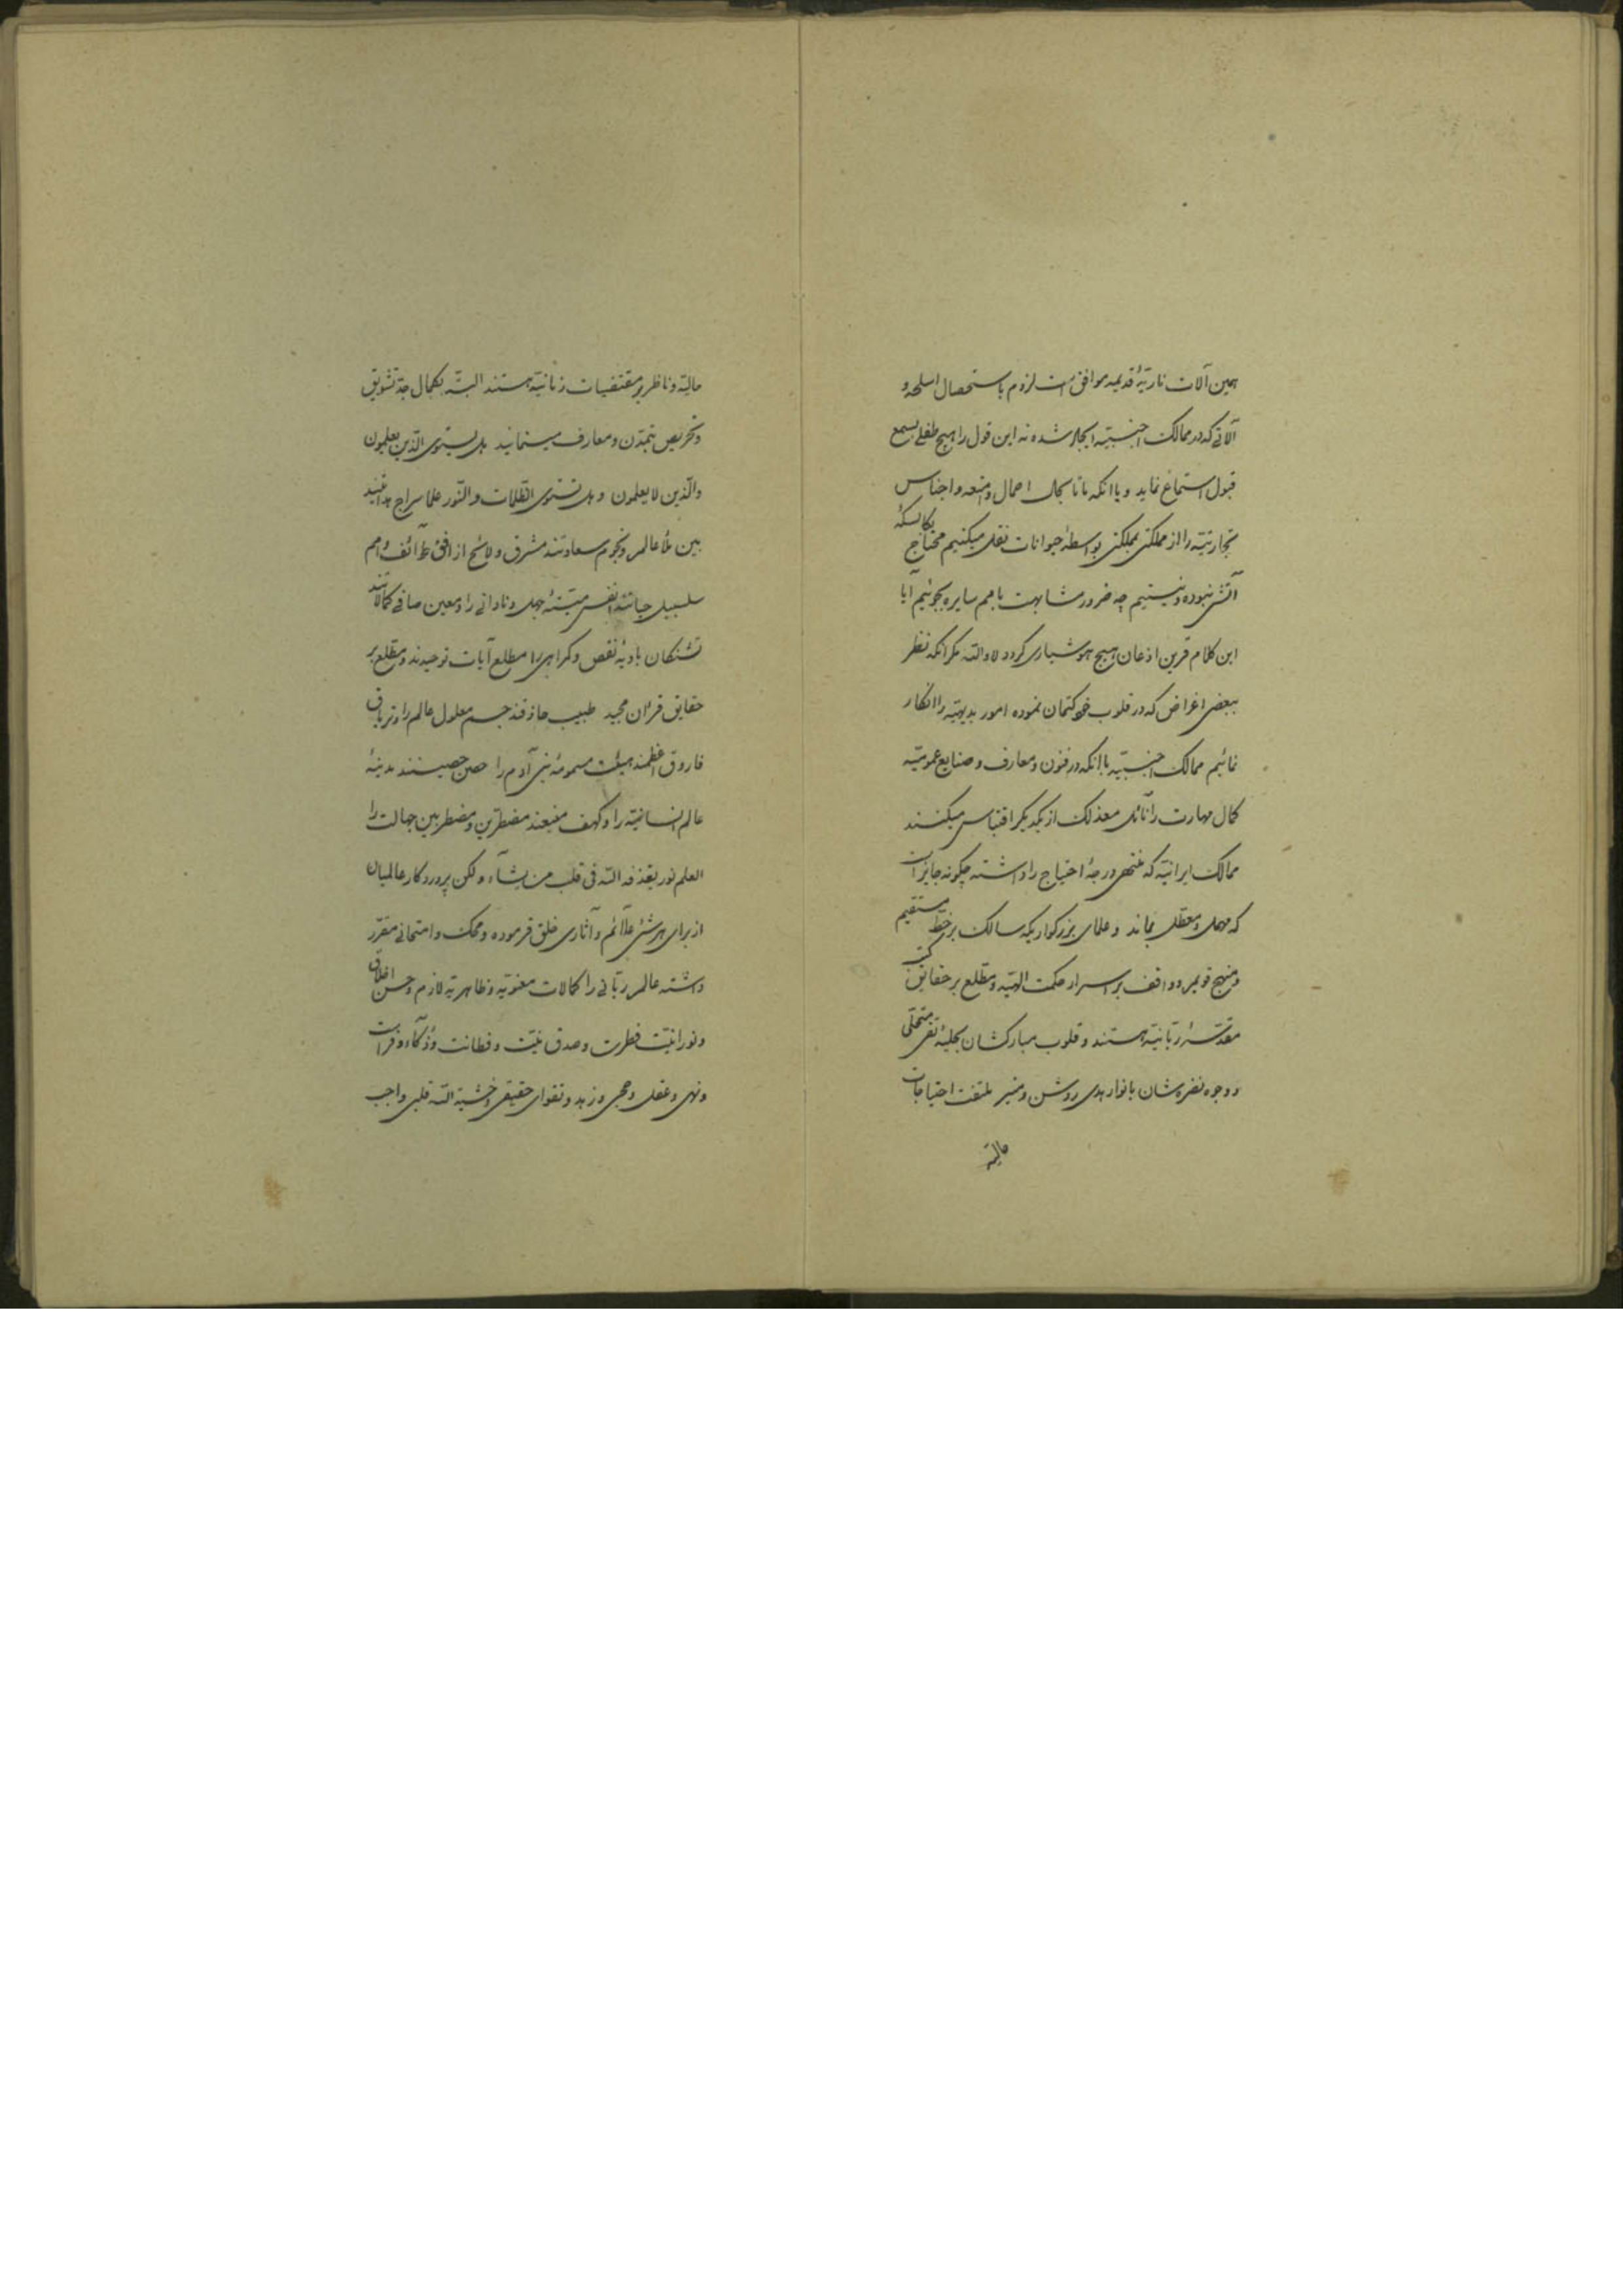 همین آلات ناریّهٔ قدیمه موافق است لزوم باستحصال اسلحه و
آلاتی که در ممالک اجنبیّه ایجاد شده نه این قول را هیچ طفلی بسمع
قبول استماع نماید و یا آنکه ما تا بحال احمال و امتعه و اجناس
تجارتیّه را از مملکتی بمملکتی بواسطهٔ حیوانات نقل میکنیم محتاج بکالسکهٔ
آتشی نبوده و نیستیم چه ضرور مشابهت بامم سایره بجوئیم آیا
این کلام قرین اذعان هیچ هوشیاری گردد لا والله مگر آنکه نظر
ببعضی اغراض که در قلوب خود کتمان نموده امور بدیهیّه را انکار
نمائیم ممالک اجنبیّه با آنکه در فنون و معارف و صنایع عمومیّه
کمال مهارت را نائل معذلک از یکدیگر اقتباس میکنند
ممالک ایرانیّه که منتهی درجهٔ احتیاج را داشته چگونه جایز است
که مهمل و معطّل بماند و علمای بزرگواریکه سالک بر خطّ مستقیم
و منهج قویم و واقف بر اسرار حکمت الهیّه و مطّلع بر حقایق کتب
مقدّسهٔ ربّانیّه هستند و قلوب مبارکشان بحلیهٔ تقی متحلّی
و وجوه نضره‌شان بانوار هدی روشن و منیر ملتفت احتیاجات
حالیّه
حالیّه و ناظر بر مقتضیات زمانیّه هستند البتّه بکمال جدّ تشویق
و تحریص بتمدّن و معارف مینمایند هل یستوی الّذین یعلمون
والّذین لا یعلمون و هل تستوی الظّلمات والنّور علما سراج هدایتند
بین ملأ عالم و نجوم سعادتند مشرق و لائح از افق طوائف و امم
سلسبیل حیاتند انفس میّتهٔ جهل و نادانی را و معین صافی کمالاتند
تشنگان بادیهٔ نقص و گمراهی را مطلع آیات توحیدند و مطّلع بر
حقایق قرآن مجید طبیب حاذقند جسم معلول عالم را و تریاق
فاروق اعظمند هیئت مسمومهٔ بنی آدم را حصن حصینند مدینهٔ
عالم انسانیّه را و کهف منیعند مضطرّین و مضطربین جهالت را
العلم نور یقذفه الله فی قلب من یشآء ولکن پروردگار عالمیان
از برای هر شئ علائم و آثاری خلق فرموده و محک و امتحانی مقرّر
داشته عالم ربّانی را کمالات معنویّه و ظاهریّه لازم و حسن اخلاق
و نورانیّت فطرت و صدق نیّت و فطانت و ذکآء و فراست
و نهی و عقل و حجی و زهد و تقوای حقیقی و خشیة الله قلبی واجب